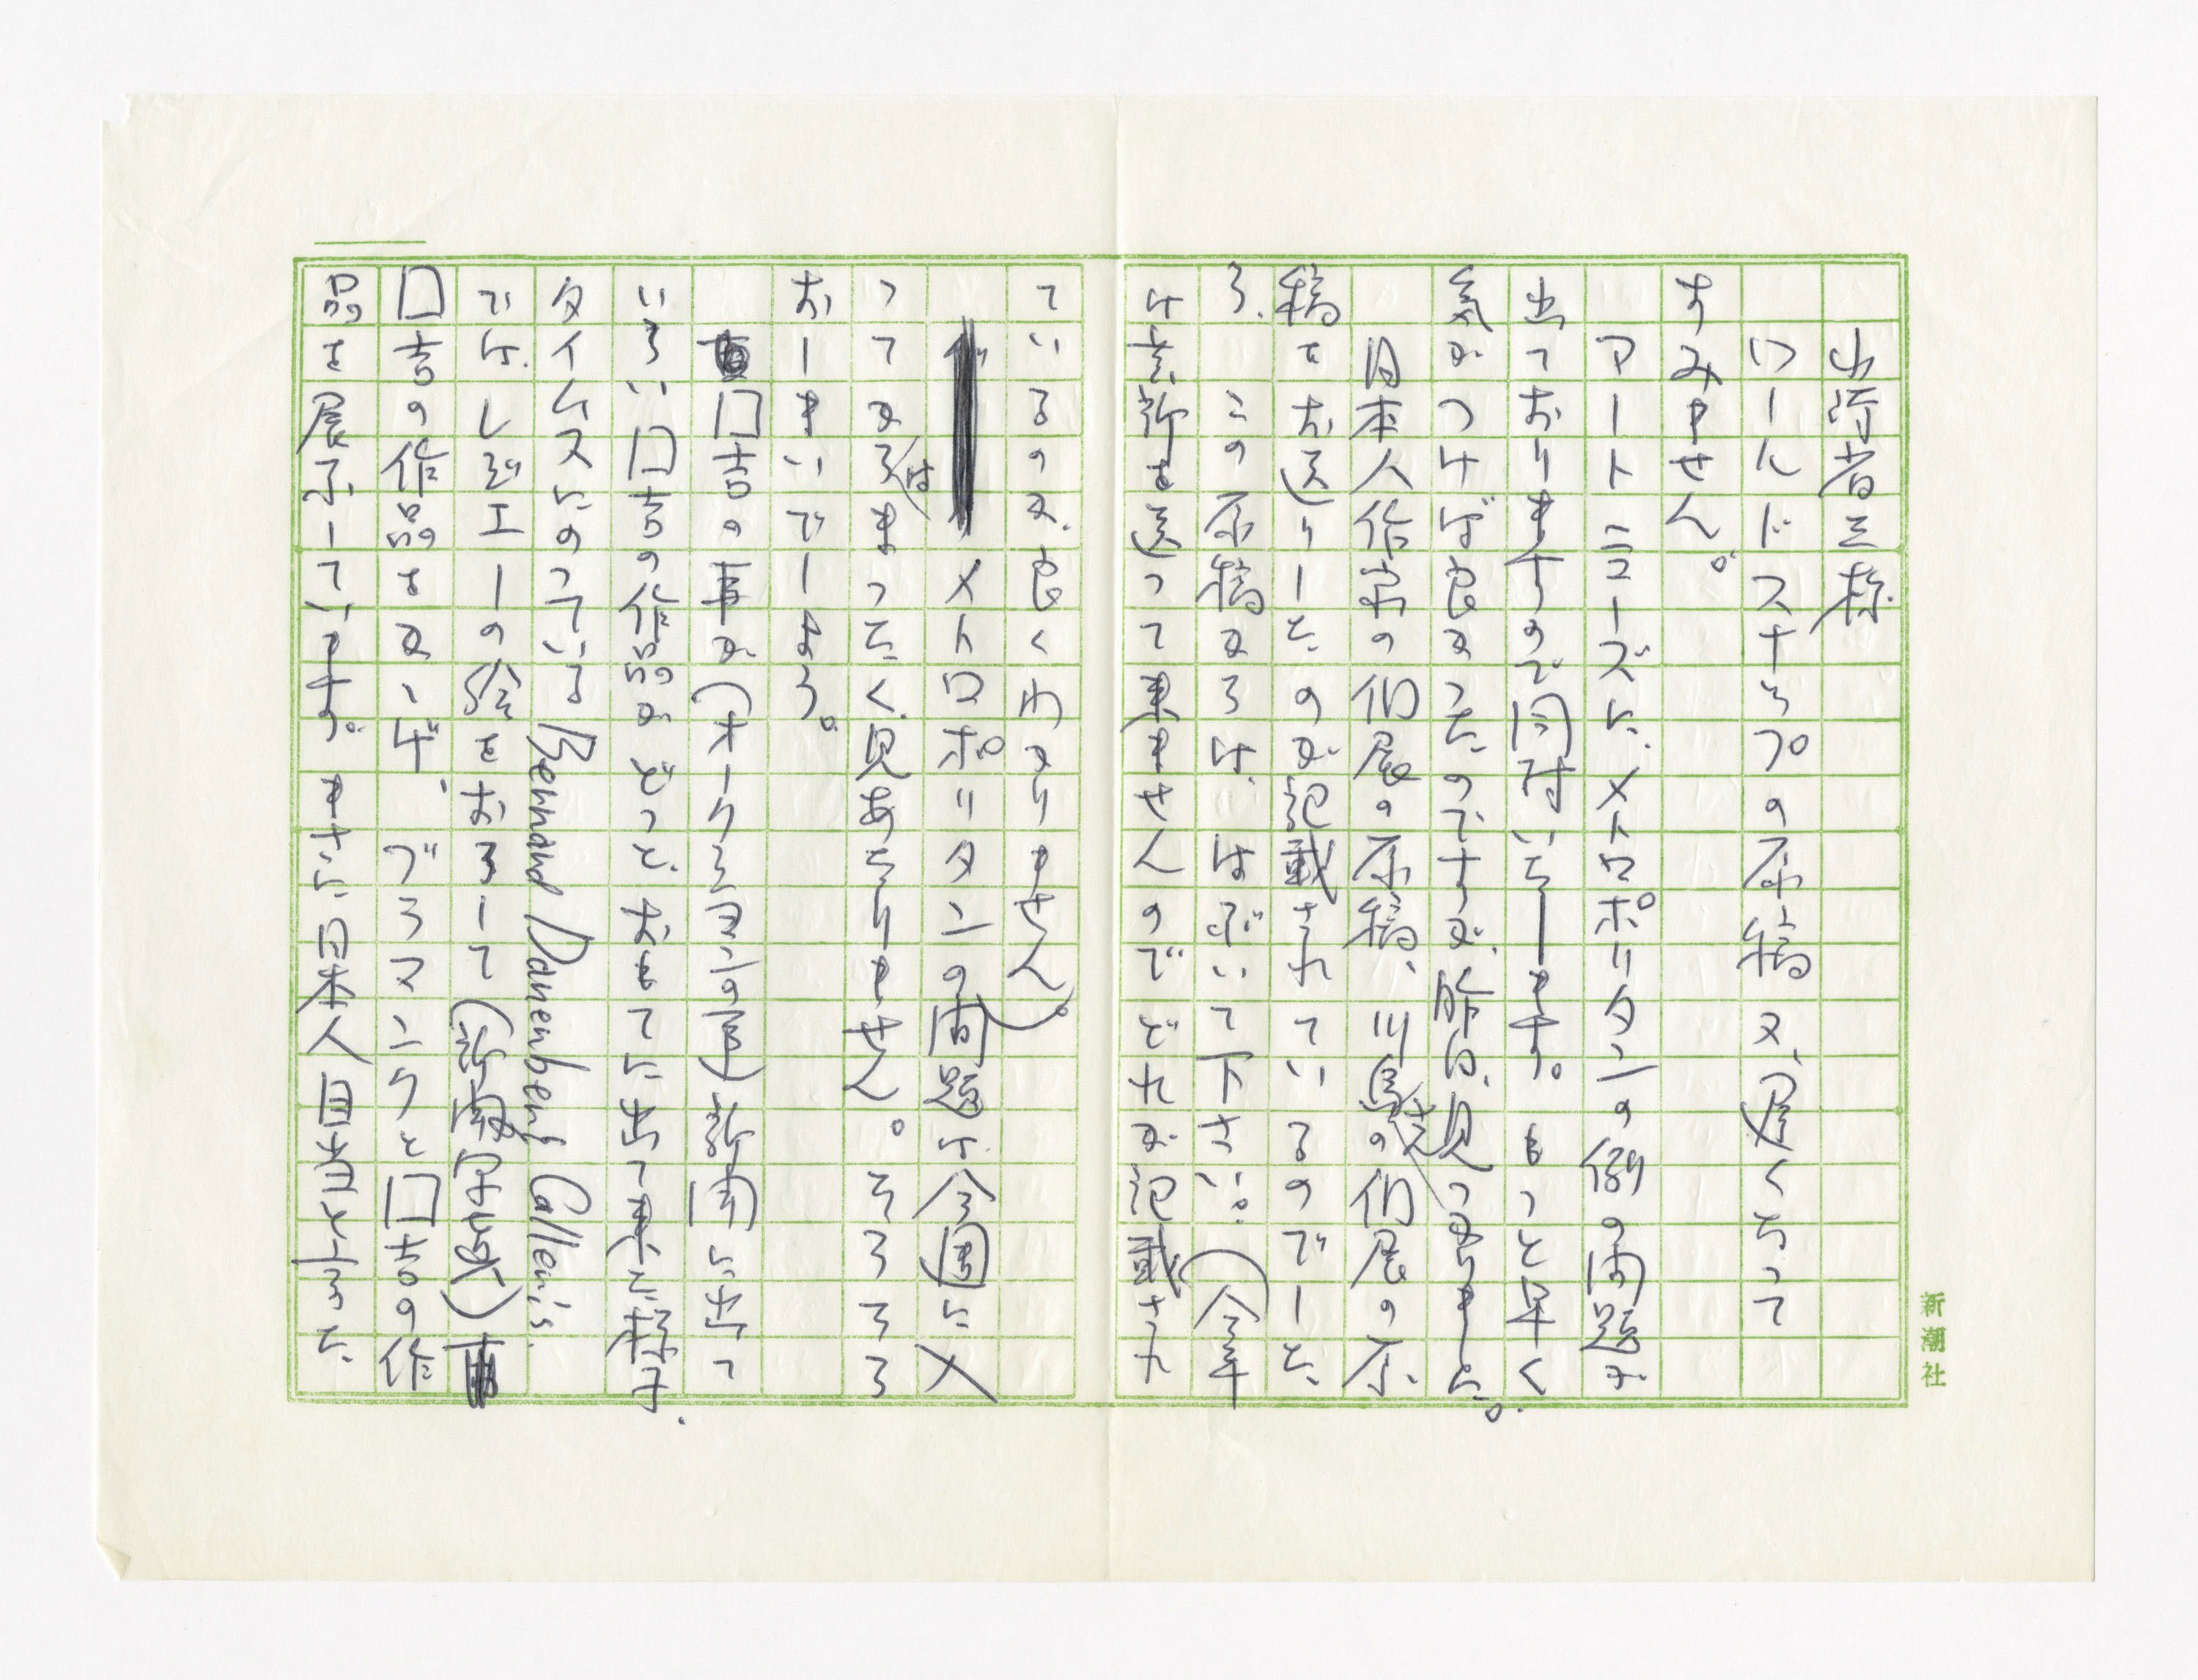 山岸省三様
ワールドスナップの原稿又、遅くなって
すみません。
アートニューズに、メトロポリタンの例の問題が
出ておりますので同封いたします。もっと早く
気がつけば良かったのですが、昨日、見つけました。
日本人作家の個展の原稿、川島さんの個展の原
稿をお送りしたのが記載されているのでした
ら、この原稿からは、はぶいて下さい。(今年
は芸新は送って来ませんのでどれが記載され
ているのか、良くわかりません)。
メトロポリタンの問題は今回に入
ってからはまったく見あたりません。そろそろ
おしまいでしょう。
国吉の事が(オークションの事)新聞に出て
いらい国吉の作品がどっと出まわって来た様子、
タイムスにのっている Bernard Danenberg Calleris
では、レジエーの絵をおろして(芸新 )
国吉の作品をかいが、ブラマンクと国吉の作
品を展示しています。またさらに日本人画商らしょうと
新潮社